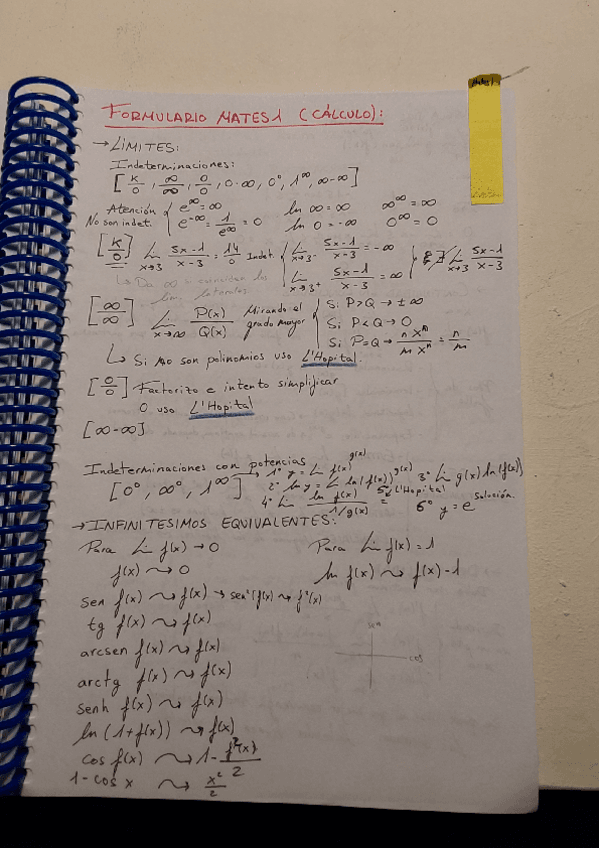 FORMULARIO MATES 1 (CÁLCULO):
→ LÍMITES:
Indeterminaciones:
[K/0, ∞/∞, 0/0, 0·∞, 0⁰, 1^∞, ∞-∞]
Atención e^∞ = ∞ ln ∞ = ∞ ∞^∞ = ∞
No son indet. e^-∞ = 1/e^∞ = 0 ln 0 = -∞ 0^∞ = 0
[K/0] Lim x→3 5x-1/x-3 = 14/0 Indet. { Lim x→3⁻ 5x-1/x-3 = -∞ ∄ Lim x→3 5x-1/x-3
Lim x→3⁺ 5x-1/x-3 = ∞
↳ Da ∞ lim. laterales
[∞/∞] Lim x→∞ P(x)/Q(x) Mirando el grado mayor { Si P>Q → ±∞
Si P<Q → 0
Si P=Q → n xⁿ/m xⁿ = n/m
↳ Si no son polinomios uso L'Hopital.
[0/0] Factorizo e intento simplificar
O uso L'Hopital
[∞-∞]
Indeterminaciones con potencias
[0⁰, ∞⁰, 1^∞] → 1º y = Lim f(x)^g(x) 2º ln y = Lim ln(f(x))^g(x) 3º Lim g(x) ln(f(x))
4º Lim ln f(x)/1/g(x) = 5º L'Hopital 6º y = e^solución.
→ INFINITESIMOS EQUIVALENTES:
Para Lim f(x) → 0 Para Lim f(x) = 1
f(x) ⤳ 0 ln f(x) ⤳ f(x)-1
sen f(x) ⤳ f(x) → sen²(f(x) ⤳ f²(x)
tg f(x) ⤳ f(x)
arcsen f(x) ⤳ f(x)
sen
cos
arctg f(x) ⤳ f(x)
senh f(x) ⤳ f(x)
ln (1+f(x)) ⤳ f(x)
cos f(x) ⤳ 1 - f²(x)/2
1-cos x ⤳ x²/2